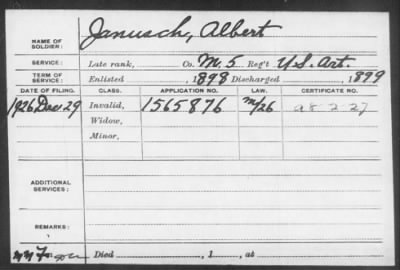 NAME OF SOLDIER: Janusch, Albert
SERVICE: Late rank, Co. M. 5 Reg't U.S. Art.
TERM OF SERVICE: Enlisted , 1898 Discharged , 1899
DATE OF FILING. CLASS. APPLICATION NO. LAW. CERTIFICATE NO.
1926 Dec 29 Invalid, 1565876 M/26
Widow,
Minor,
ADDITIONAL SERVICES:
REMARKS:
Died , 1 , at